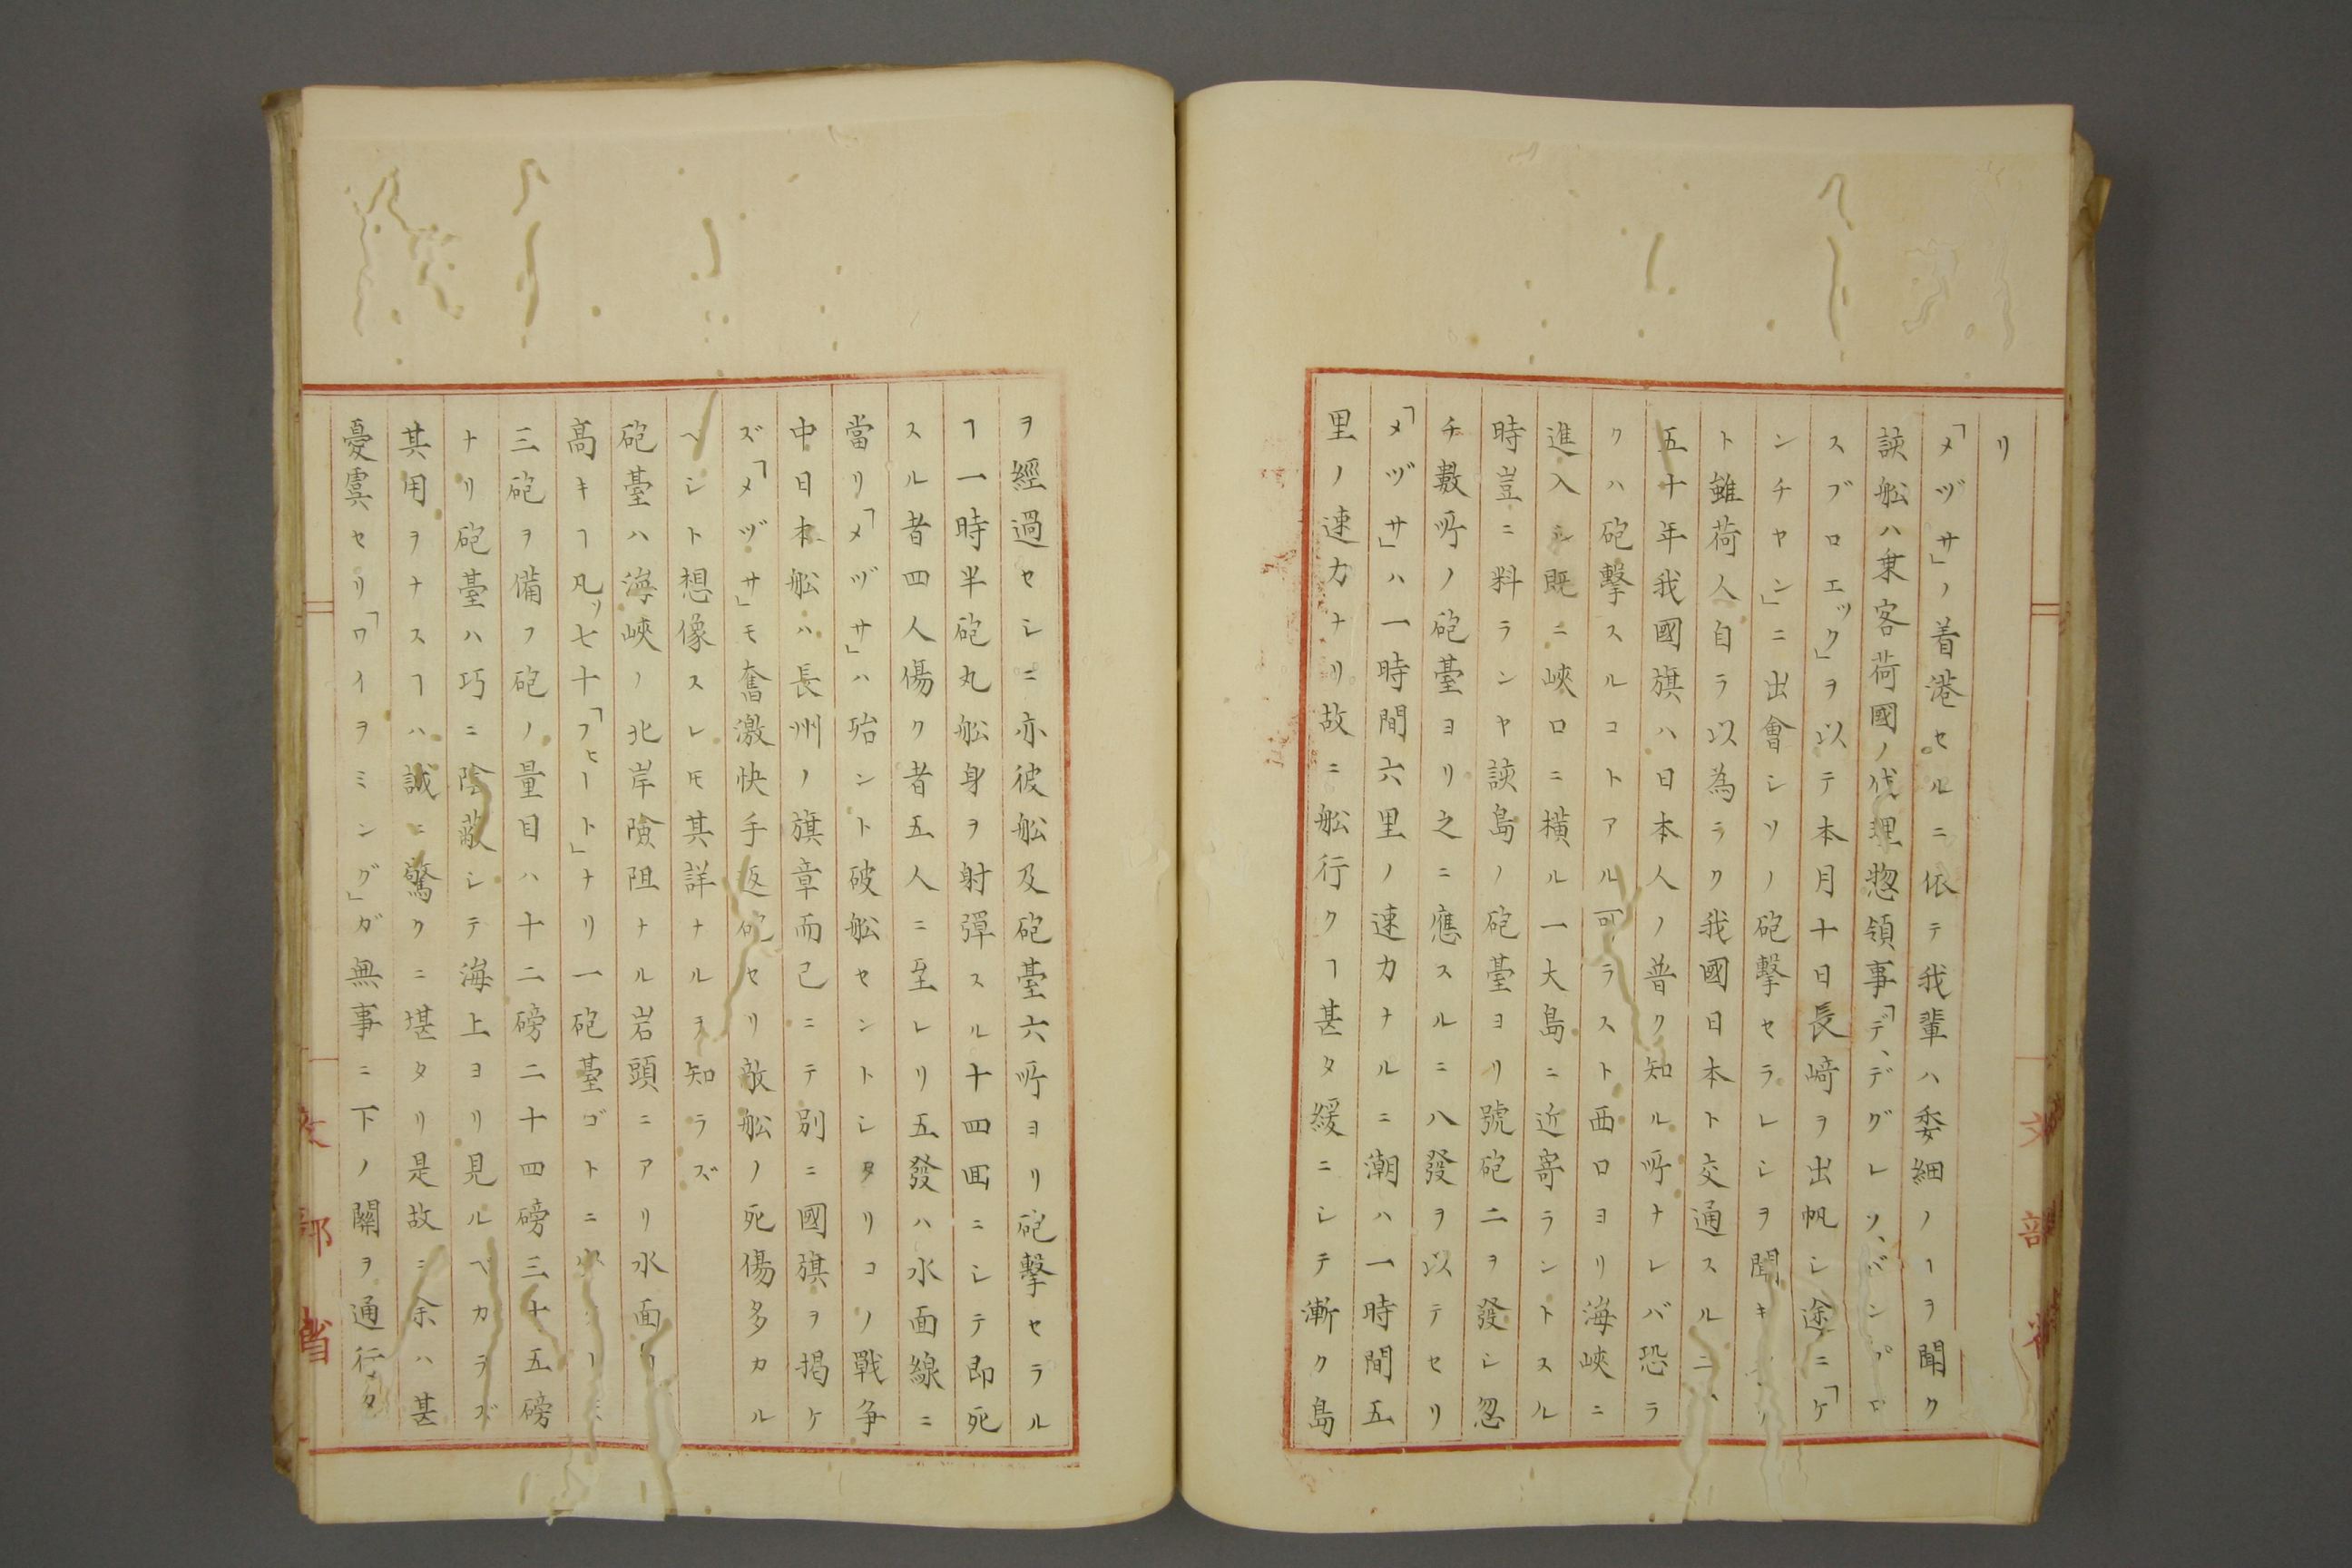 リ
「メヅサ」ノ着港セルニ依テ我輩ハ委細ノヿヲ聞ク
該舩ハ乗客荷國ノ代理惣領事「デ、デグレソ、バンポロ
スブロエック」ヲ以テ本月十日長﨑ヲ出帆シ途ニ「ケ
ンチヤン」ニ出會シソノ砲撃セラレシヲ聞キ
ト雖荷人自ラ以為ラク我國日本ト交通スルニ
五十年我國旗ハ日本人ノ普ク知ル所ナレバ恐ラ
クハ砲撃スルコトアル可ラスト西口ヨリ海峽ニ
進入シ既ニ峽口ニ横ル一大島ニ近寄ラントスル
時豈ニ料ランヤ該島ノ砲臺ヨリ號砲二ヲ發シ忽
チ數所ノ砲臺ヨリ之ニ應スルニ八發ヲ以テセリ
「メヅサ」ハ一時間六里ノ速力ナルニ潮ハ一時間五
里ノ速力ナリ故ニ舩行クヿ甚タ緩ニシテ漸ク島
文部省
ヲ經過セシニ亦彼舩及砲臺六所ヨリ砲擊セラル
ヿ一時半砲丸舩身ヲ射彈スル十四囬ニシテ即死
スル者四人傷ク者五人ニ至レリ五發ハ水面線ニ
當リ「メヅサ」ハ殆ント破舩セントシタリコノ戰争
中日本舩ハ長州ノ旗章而已ニテ別ニ國旗ヲ掲ケ
ズ「メヅサ」モ奮激快手返砲セリ敵舩ノ死傷多カル
ヘシト想像スレモ其詳ナルヲ知ラズ
砲臺ハ海峽ノ北岸險阻ナル岩頭ニアリ水面ヨリ
高キヿ凡ソ七十「フヒート」ナリ一砲臺ゴトニ
三砲ヲ備フ砲ノ量目ハ十二磅二十四磅三十五磅
ナリ砲臺ハ巧ニ陰蔽シテ海上ヨリ見ルベカラズ
其用ヲナスヿハ誠ニ驚クニ堪タリ是故ニ余ハ甚
憂虞セリ「ワイヲミング」ガ無事ニ下ノ關ヲ通行
文部省